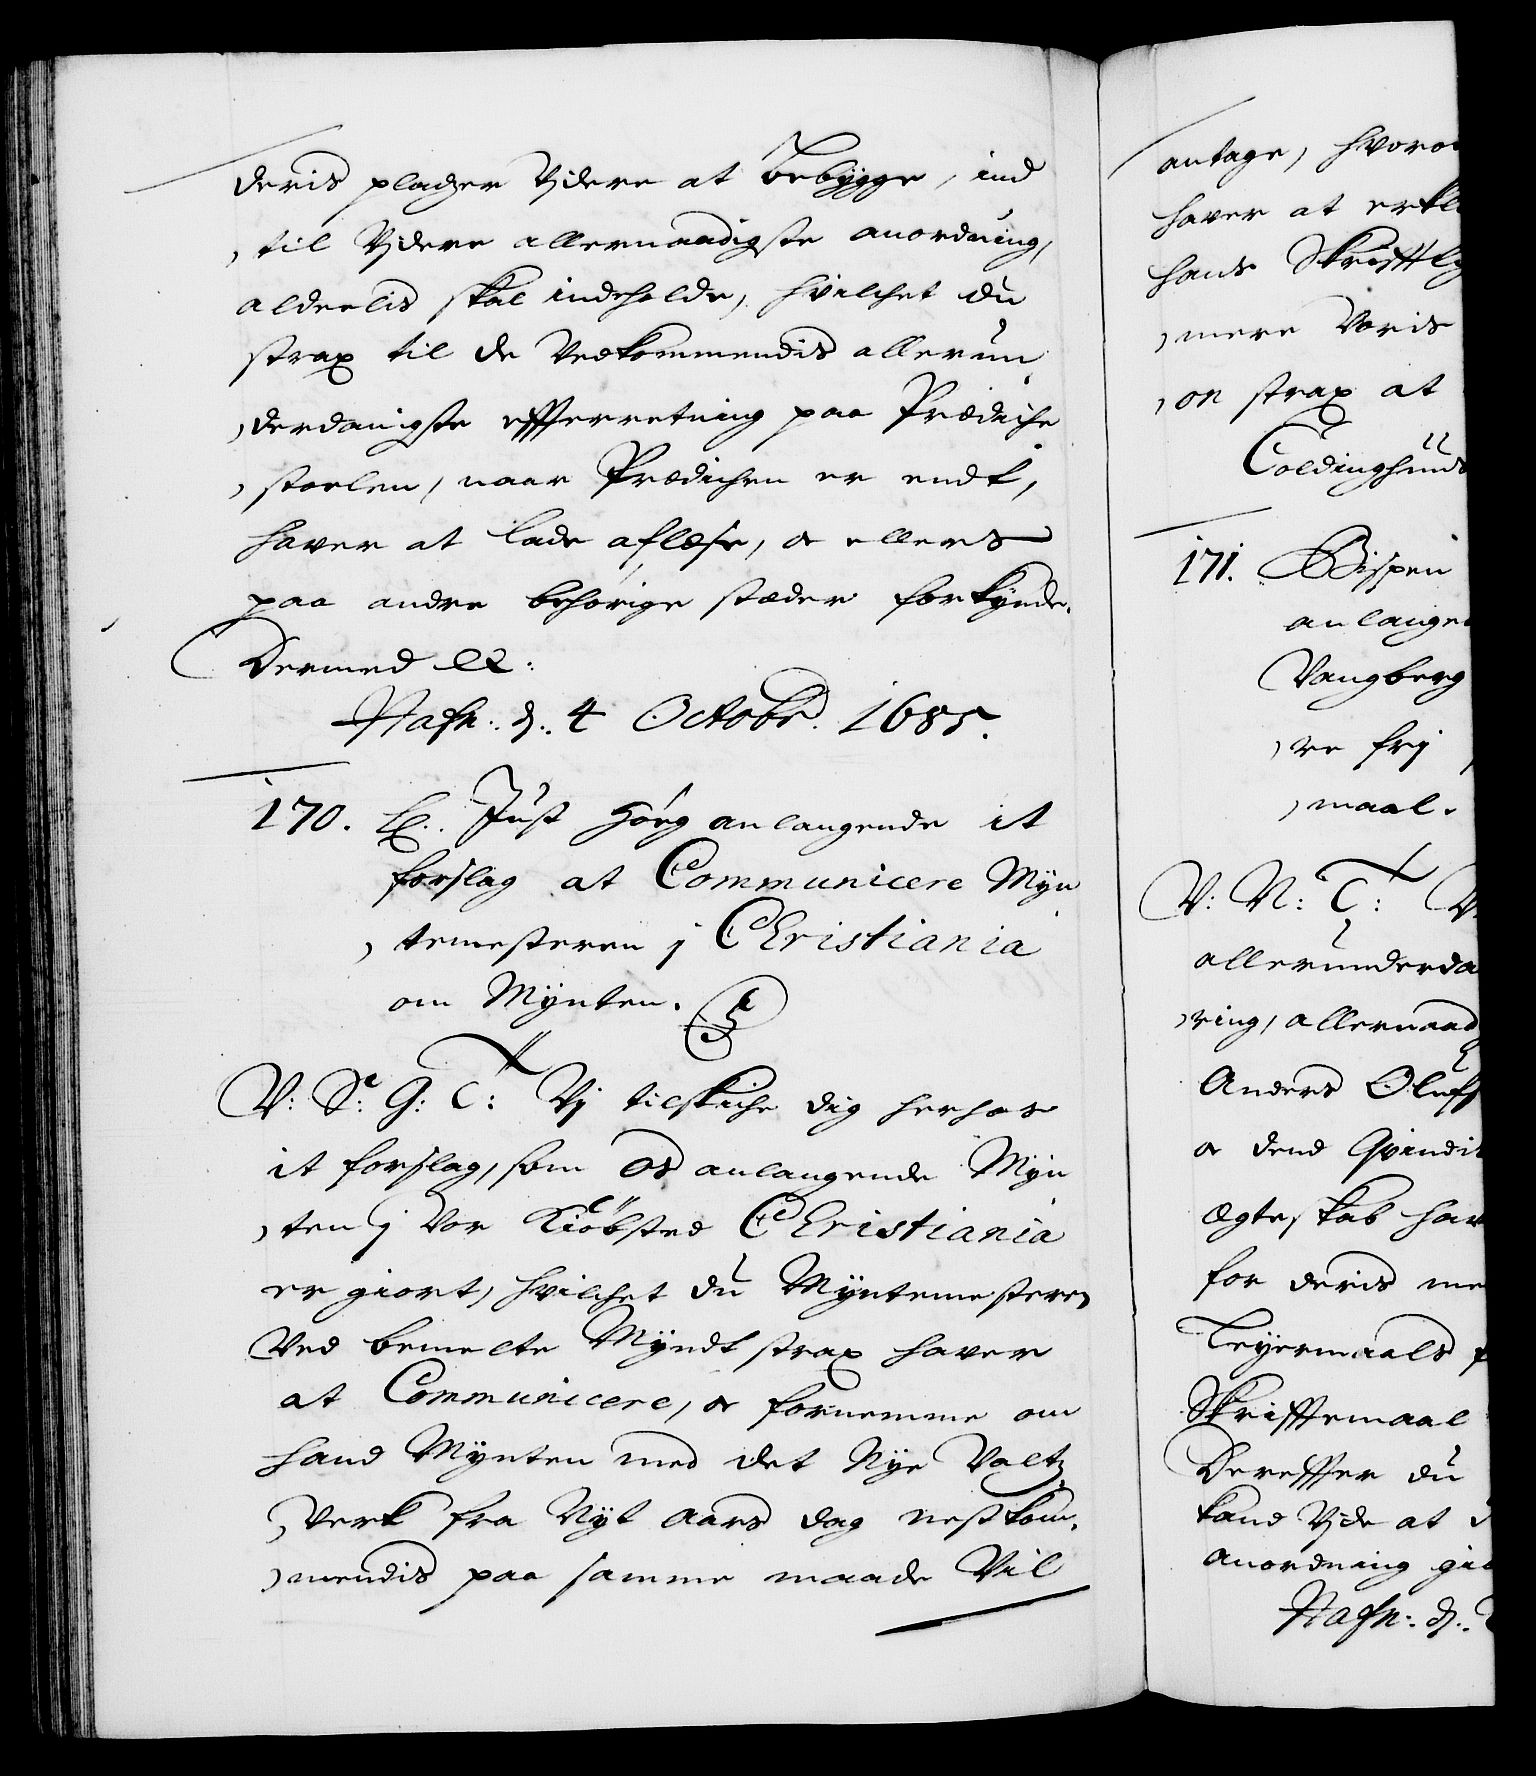 deris pladzer Vjdere at bebÿgge, ind
til Vjdere allernaadigste anordning,
aldeelis skal indeholde, hvilchet du
strax til de Vedkommendis allerun
derdanigste effterretning paa Prædiche
stoelen, naar Prædichen er endt,
haver at lade aflæse, oc ellers
paa andre behörige stæder forkÿnde.
Dermed etc:
Hafn: d: 4 Octobr. 1685.
170. Just Höeg anlangende it
forslag at Communicere Mÿn
temesteren j Christiania
om Mÿnten.
V: S: G: T: Vj tilskiche dig herhos
it forslag, som os anlangende Mÿn
ten j Vor Kiöbsted Christiania
er giort, hvilchet du Mÿntemesteren
Ved bemelte Mÿndt strax haver
at Communicere, oc fornemme om
hand Mÿnten med det Nÿe Valtz
Verk fra Nÿt Aars dag nestkom,
mendis paa samme maade Vil
antage, hvoro
haver at erkl
hans Skrifftl
mere Voris
on strax at
Coldinghuus
171. Bispen
anlange
Vangberg
re frj
maal.
V: N: T: V
allerunderda
ring, allernaad
Anders Oluff
oc dend Qvindi
Ægteskab hav
for deris me
Leyermaals
Skrifftemaal
Dereffter du
kand Vide at
anordning gi
Hafn: d: